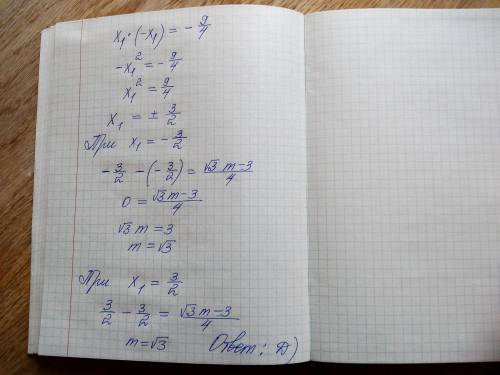 x₁·(-x₁) = - 9/4
-x₁² = - 9/4
x₁² = 9/4
x₁ = ± 3/2
При x₁ = - 3/2
- 3/2 - (- 3/2) = (√3 m-3)/4
0 = (√3 m-3)/4
√3 m = 3
m = √3
При x₁ = 3/2
3/2 - 3/2 = (√3 m-3)/4
m = √3 Ответ: Д)